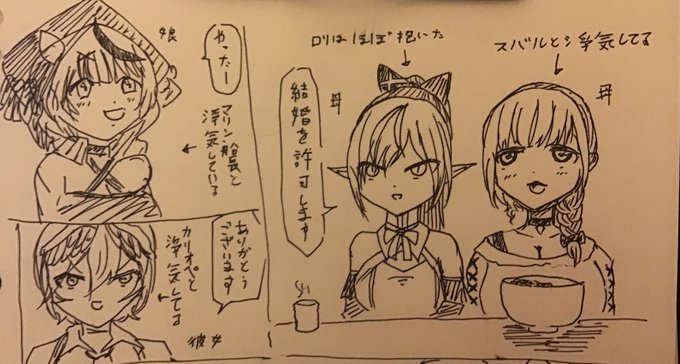 スバルと浮気してる
母
ロリはほぼ抱いた
母
結婚を許可します
娘
やったー
マリン船長と
浮気している
ありがとう
ございます
カリオペと
浮気してる
彼女